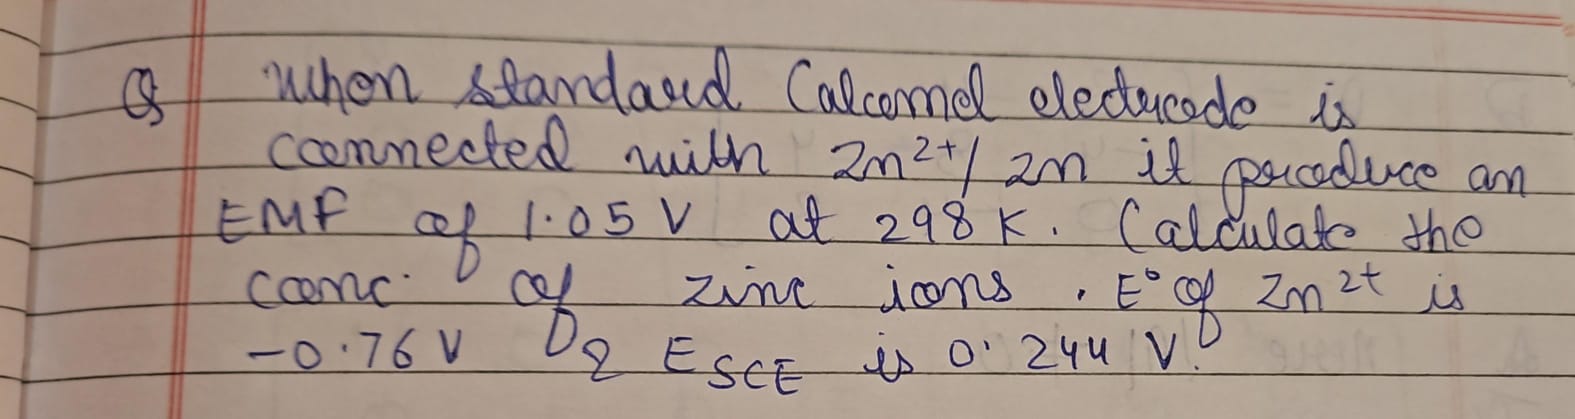 Q When standard Calcomel electrode is
connected with Zn²⁺/Zn it produce an
EMF of 1.05 V at 298 K. Calculate the
conc. of zinc ions. E° of Zn²⁺ is
-0.76 V & E SCE is 0.244 V.